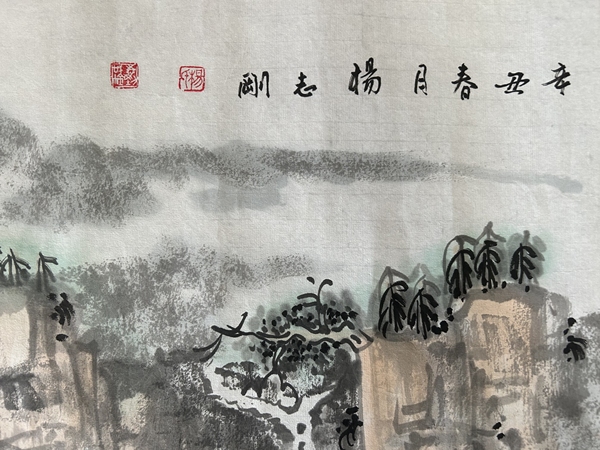 辛丑春月楊志剛